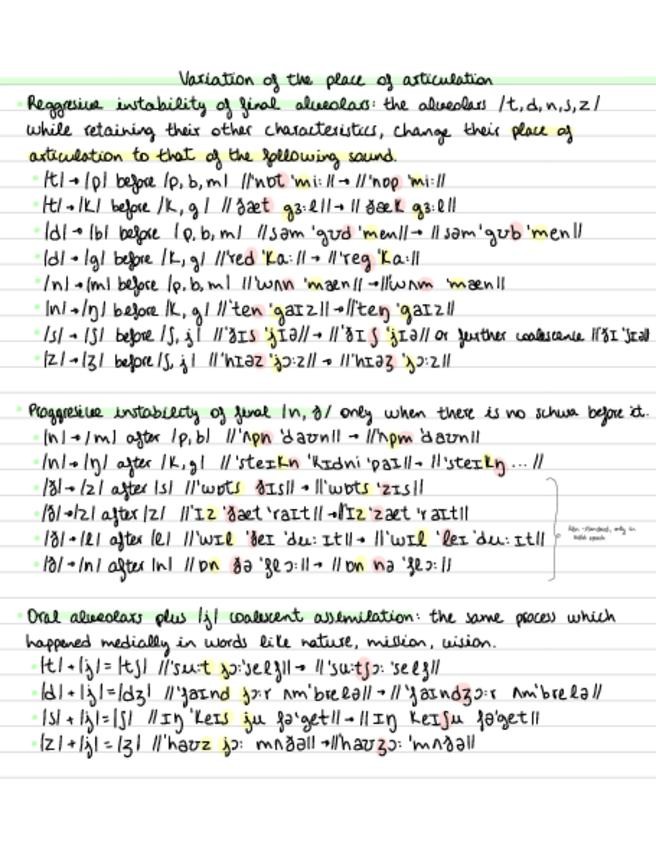 Variation of the place of articulation
Reggresive instability of final alveolars: the alveolars /t, d, n, s, z/
while retaining their other characteristics, change their place of
articulation to that of the following sound.
/t/ → /p/ before /p, b, m/ //'nɒt 'miː// → //'nɒp 'miː//
/t/ → /k/ before /k, g/ // ðæt gɜːl// → // ðæk gɜːl//
/d/ → /b/ before /p, b, m/ //səm 'gʊd 'men// → //səm 'gʊb 'men//
/d/ → /g/ before /k, g/ //'red 'kaː// → //'reg 'kaː//
/n/ → /m/ before /p, b, m/ //'wʌn 'mæn// → //'wʌm 'mæn//
/n/ → /ŋ/ before /k, g/ //'ten 'gaɪz// → //'teŋ 'gaɪz//
/s/ → /ʃ/ before /ʃ, j/ //'ðɪs 'jɪə// → //'ðɪʃ 'jɪə// or further coalescence //'ðɪ 'ʃɪə//
/z/ → /ʒ/ before /ʃ, j/ //'hɪəz 'jɔːz// → //'hɪəʒ 'jɔːz//
Proggresive instability of final /n, ð/ only when there is no schwa before it.
/n/ → /m/ after /p, b/ //'ʌpn 'daʊn// → //'ʌpm 'daʊn//
/n/ → /ŋ/ after /k, g/ //'steɪkn 'kɪdni 'paɪ// → //'steɪkŋ ... //
/ð/ → /z/ after /s/ //'wɒts ðɪs// → //'wɒts 'zɪs//
/ð/ → /z/ after /z/ //'ɪz 'ðæt 'raɪt// → //'ɪz 'zæt 'raɪt//
/ð/ → /l/ after /l/ //'wɪl 'ðeɪ 'duː ɪt// → //'wɪl 'leɪ 'duː ɪt//
/ð/ → /n/ after /n/ //ɒn ðə 'flɔː// → //ɒn nə 'flɔː//
Non-standard, only in
speech
Oral alveolars plus /j/ coalescent assimilation: the same process which
happened medially in words like nature, mission, vision.
/t/ + /j/ = /tʃ/ //'suːt jɔː'self// → //'suːtʃɔː 'self//
/d/ + /j/ = /dʒ/ //'faɪnd jɔːr ʌm'brelə// → //'faɪndʒɔːr ʌm'brelə//
/s/ + /j/ = /ʃ/ //ɪŋ 'keɪs ju fə'get// → //ɪŋ keɪʃu fə'get//
/z/ + /j/ = /ʒ/ //'haʊz jɔː mʌðə// → //'haʊʒɔː 'mʌðə//